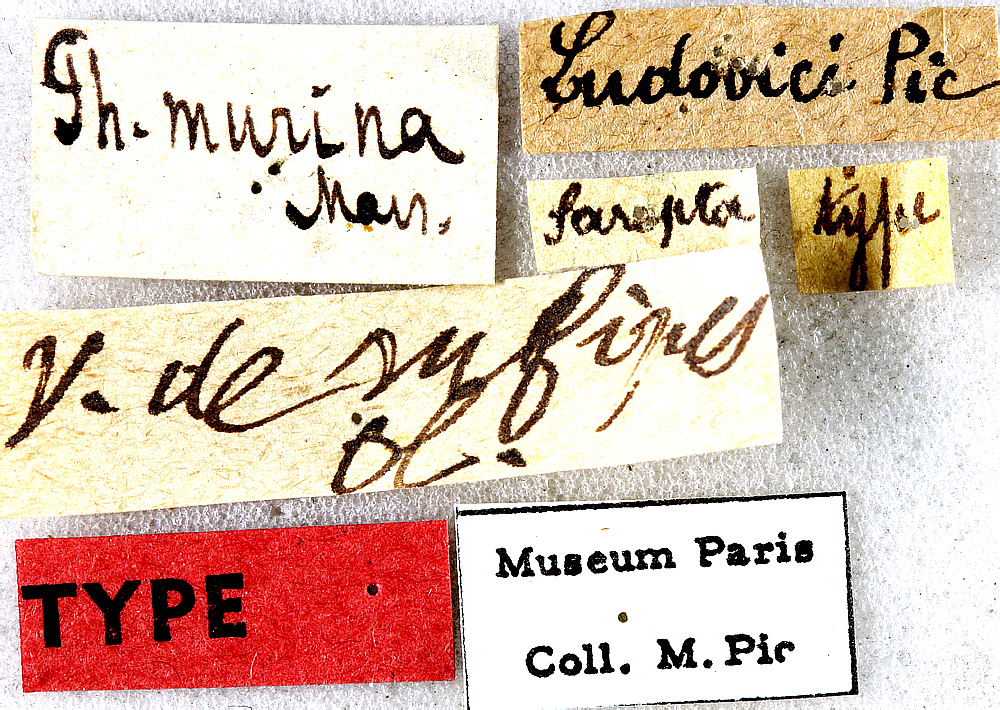 Th. murina
Man.
Ludovici Pic
Sarepta
type
v. de rufipes
Ol.
TYPE
Museum Paris
Coll. M. Pic